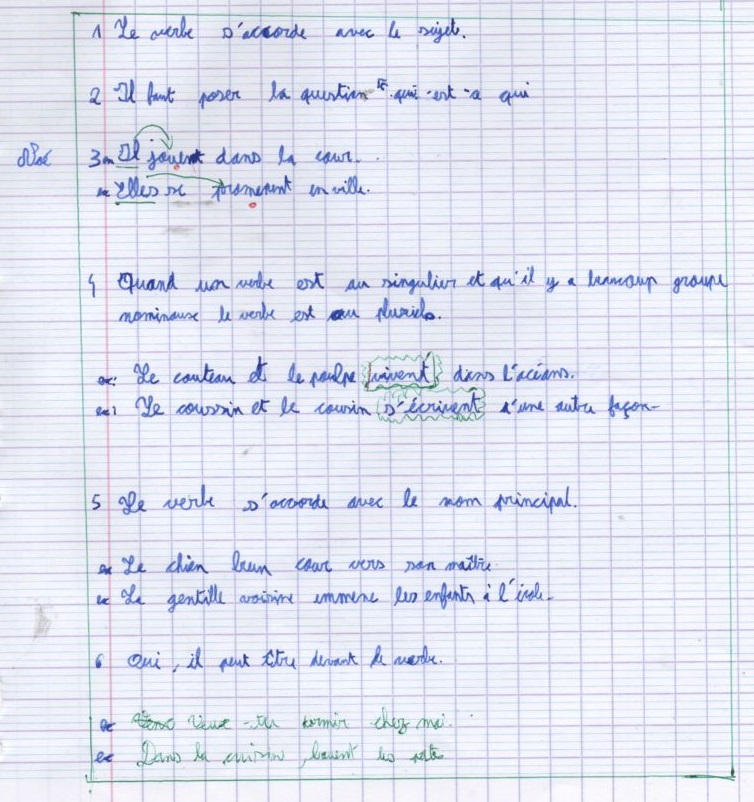 1 Le verbe s'accorde avec le sujet.
2 Il faut poser la question qui -est -a qui
Noé
3 ex Il jouent dans la cour.
ex Elles se promenent en ville.
4 Quand un verbe est au singulier et qu'il y a beaucoup groupe
nominaux le verbe est au pluriels.
ex: Le couteau et le poulpe vivent dans l'océans.
ex: Le coussin et le cousin s'écrivent d'une autre façon-
5 Le verbe s'accorde avec le nom principal.
ex Le chien brun cour vers son maître
ex La gentille voisine emmene les enfants à l'école-
6 Oui, il peut être devant le verbe.
ex Veux -tu dormir chez moi.
ex Dans la, les